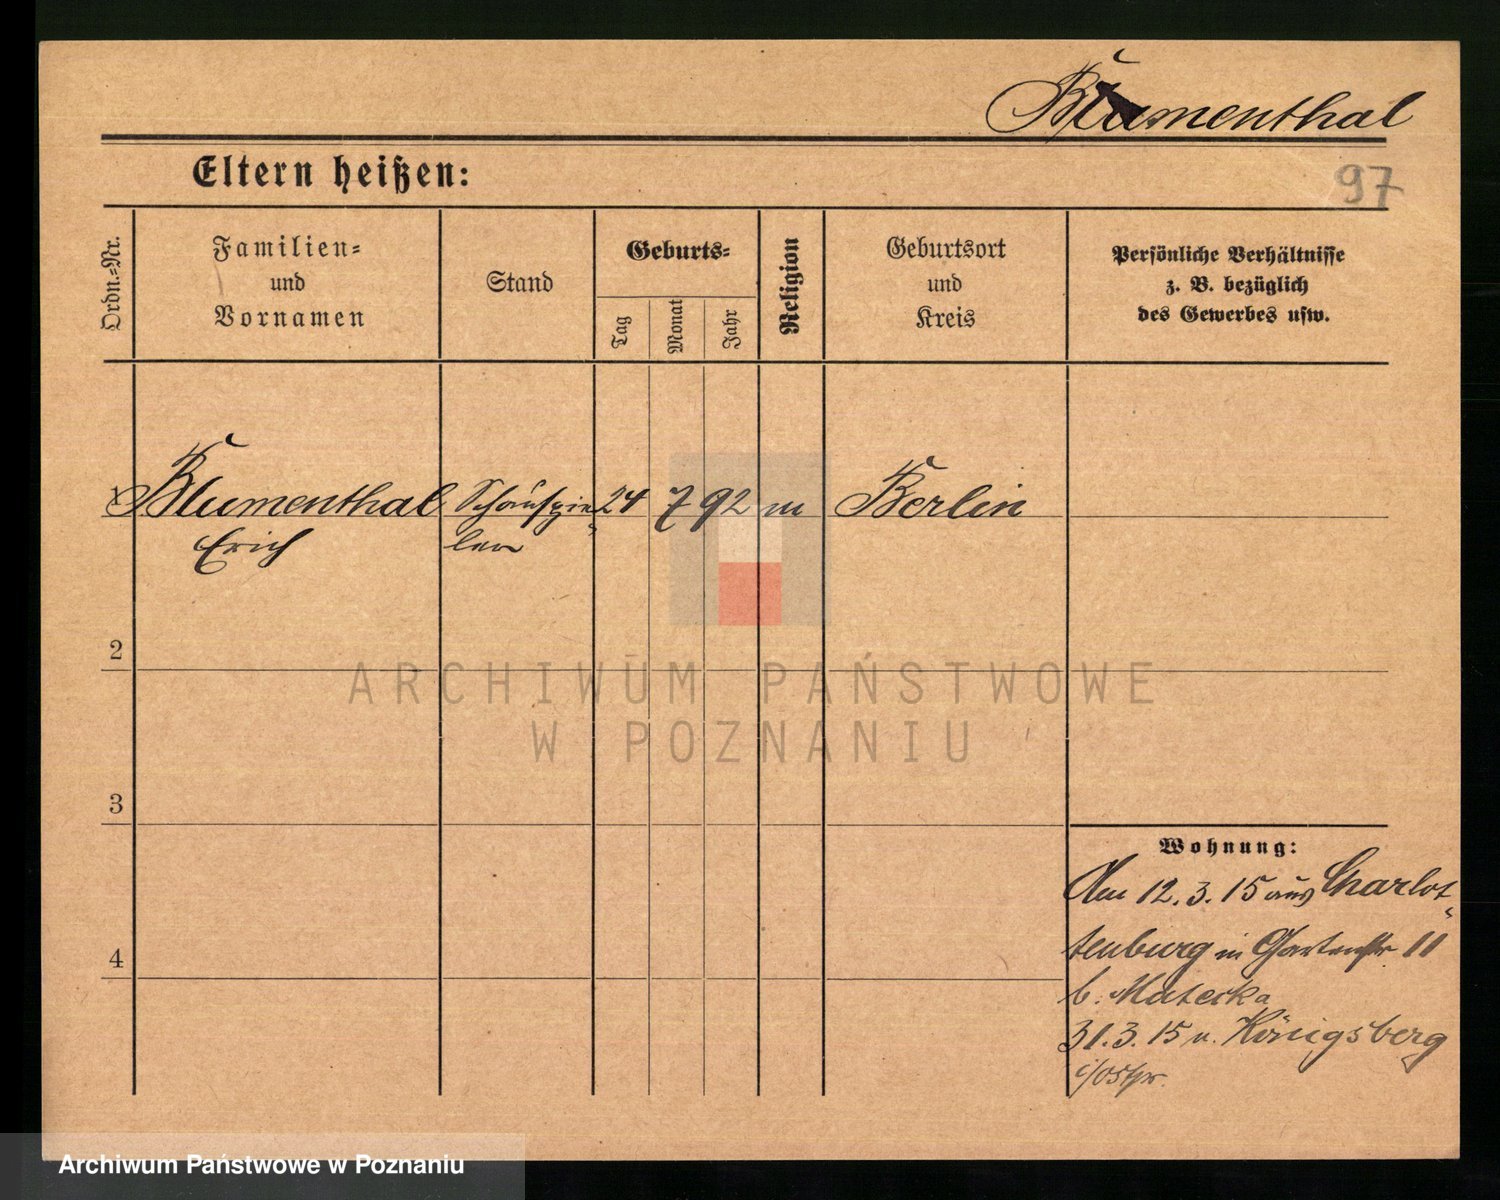 Blumenthal
Eltern heißen:
97
Ordn.=Nr.
Familien=
und
Vornamen
Stand
Geburts=
Tag
Monat
Jahr
Religion
Geburtsort
und
Kreis
Persönliche Verhältnisse
z. B. bezüglich
des Gewerbes usw.
1 Blumenthal Schauspie= 24 7 92 m Berlin
Erich ler
2
3
4
Wohnung:
Am 12.3.15 aus Charlot=
tenburg in Gartenstr 11
b. Matecka
31.3.15 n. Königsberg
i/Ostpr.
ARCHIWUM PAŃSTWOWE
W POZNANIU
Archiwum Państwowe w Poznaniu